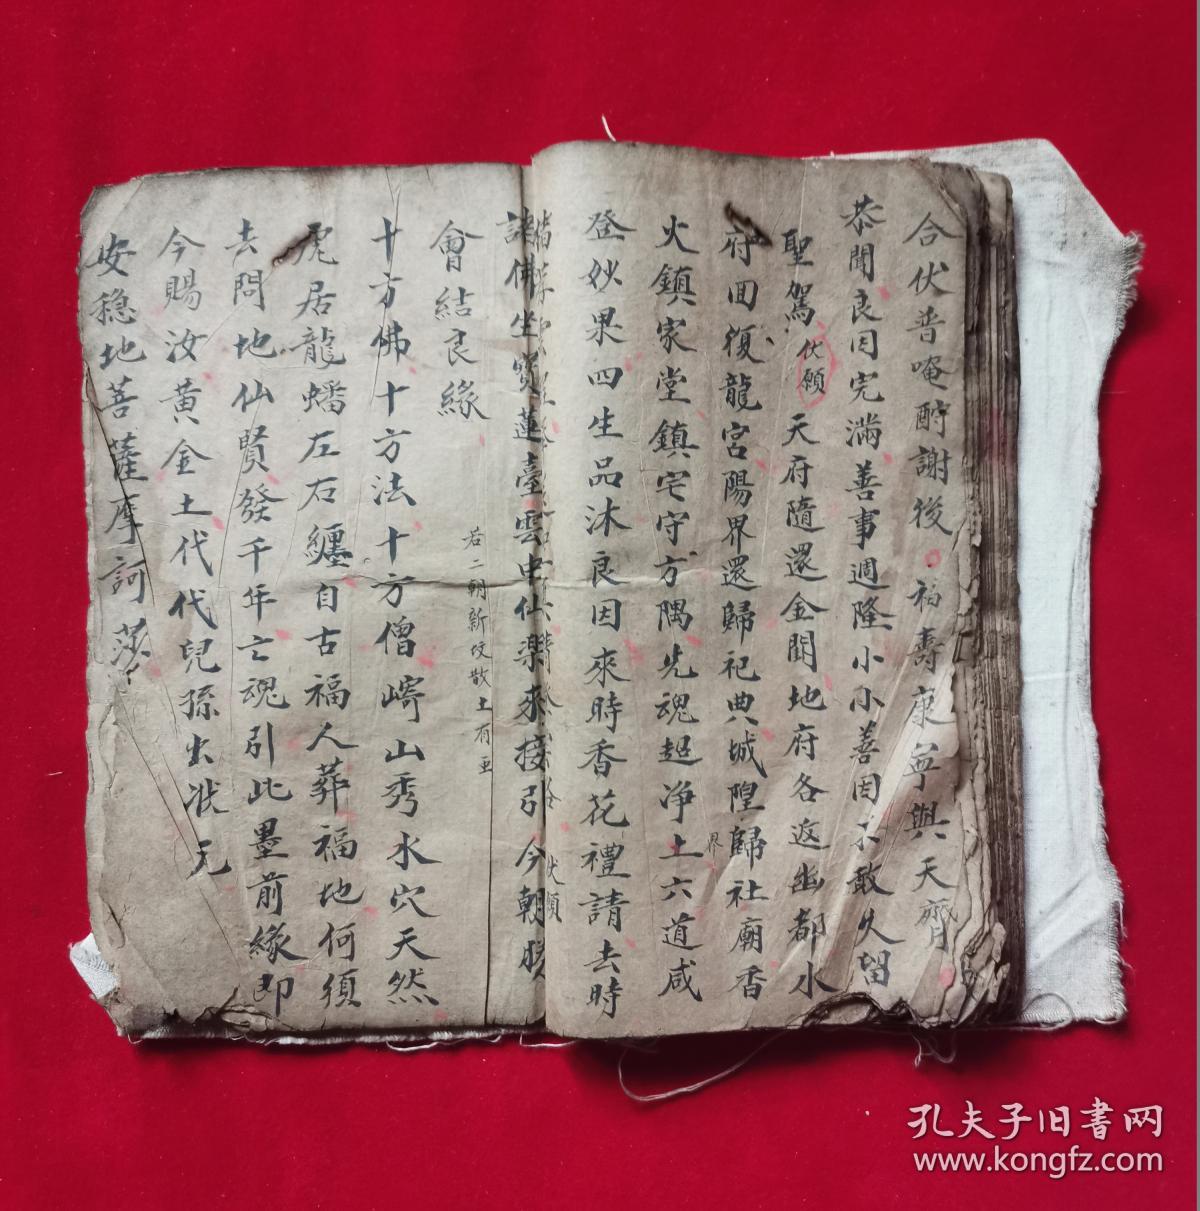 合伏普唵酧謝後福壽康寧與天齊
恭聞良因完滿善事週隆小小善因不敢久留
聖駕伏願天府隨還金闕地府各返幽都水
府回復龍宮陽界還歸祀典城隍歸社廟香
界
火鎮家堂鎮宅守方隅先魂起净土六道咸
登妙果四生品沐良因來時香花禮請去時
伏願
諸佛坐寶蓮臺雲中仙樂來接引今朝
會結良緣
若二朝新攻散土有重
十方佛十方法十方僧崎山秀水穴天然
虎居龍蟠左右纏自古福人葬福地何須
去問地仙賢發千年亡魂引此墨前緣即
今賜汝黄金土代代兒孫出狀元
安稳地菩薩摩訶莎
孔夫子旧书网
www.kongfz.com